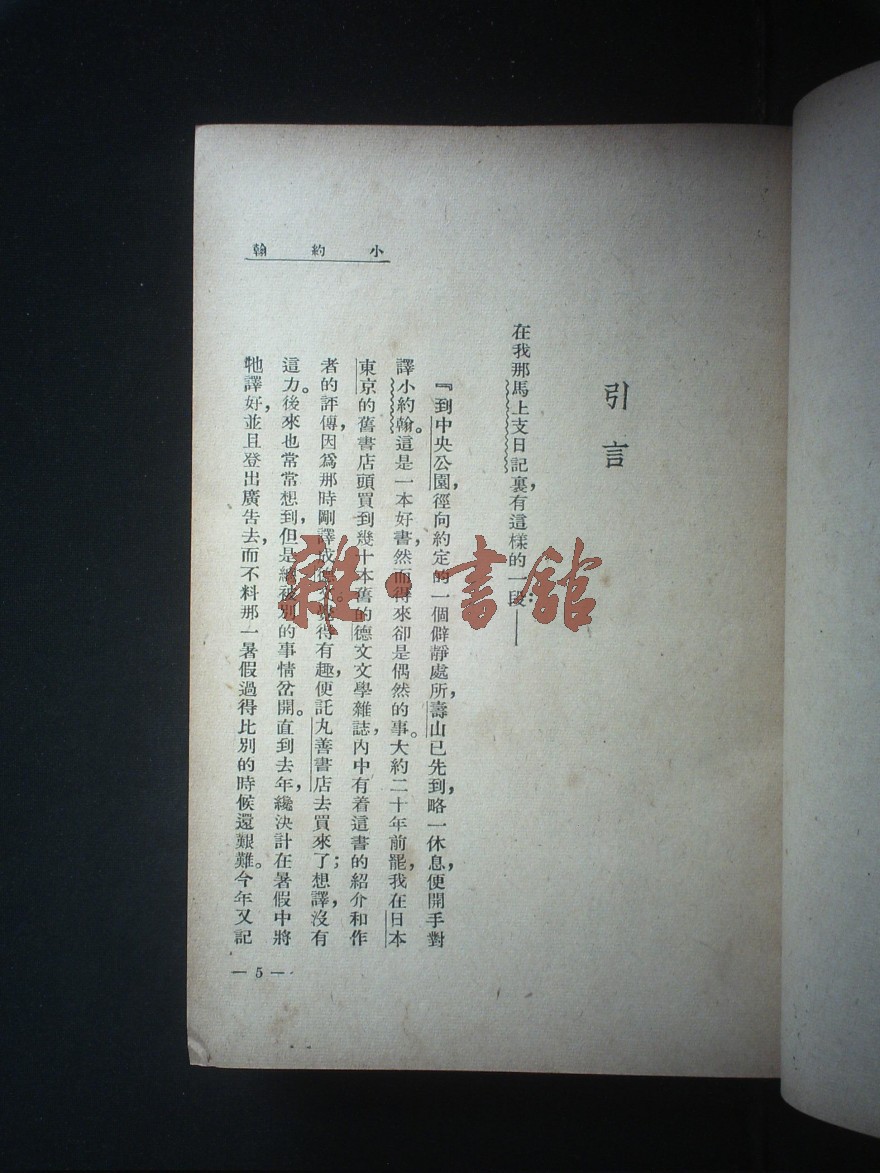 小約翰
引言
在我那馬上支日記裏，有這樣的一段：——
『到中央公園，徑向約定的一個僻靜處所，壽山已先到，略一休息，便開手對
譯小約翰。這是一本好書，然而得來卻是偶然的事。大約二十年前罷，我在日本
東京的舊書店頭買到幾十本舊的德文文學雜誌，內中有着這書的紹介和作
者的評傳，因爲那時剛譯成德文。覺得有趣，便託丸善書店去買來了；想譯，沒有
這力。後來也常常想到，但是總被別的事情岔開。直到去年，纔決計在暑假中將
牠譯好，並且登出廣告去，而不料那一暑假過得比別的時候還艱難。今年又記
— 5 —
雜·書館